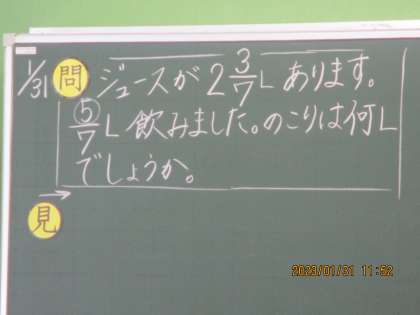 1/31 問 ジュースが2 3/7 L あります。
5/7 L 飲みました。のこりは何L
でしょうか。
見
2023/01/31 11:52